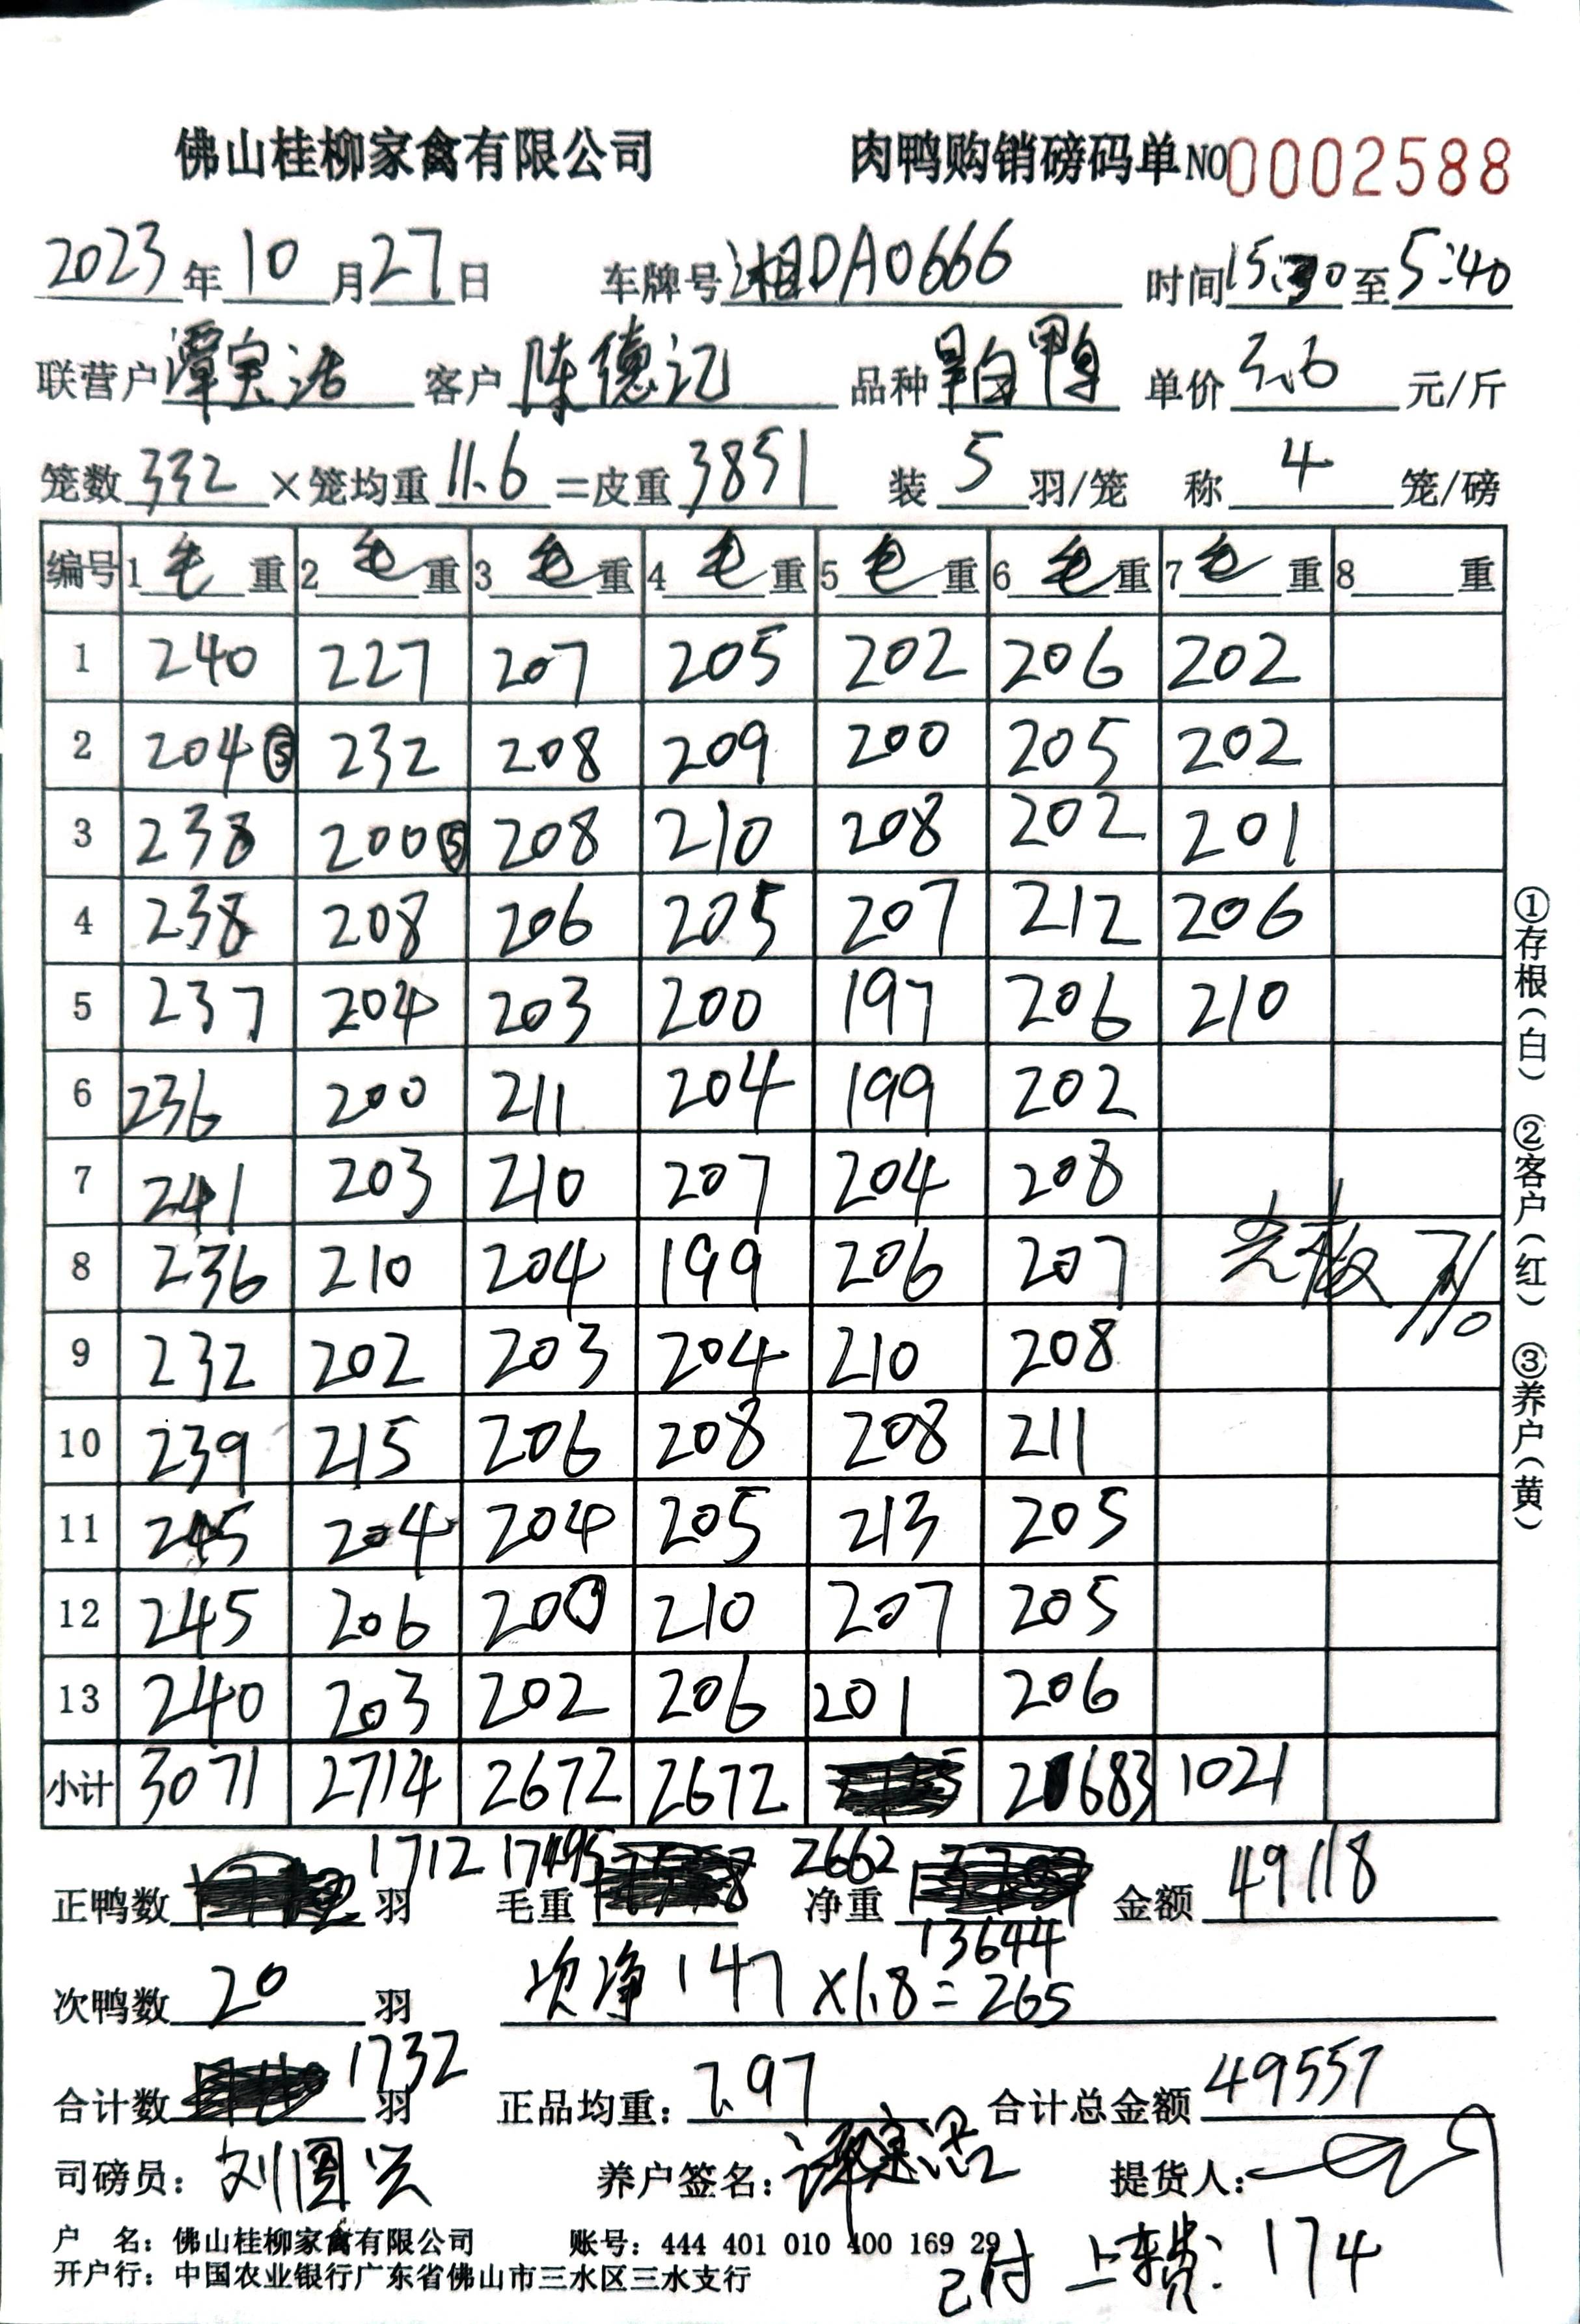 佛山桂柳家禽有限公司 肉鸭购销磅码单NO0002588
2023年10月27日 车牌号湘DA0666 时间15:30至5:40
联营户谭实浩 客户陈德记 品种 白鸭 单价3.6元/斤
笼数332×笼均重11.6=皮重3851 装5羽/笼 称4笼/磅
编号 1毛重 2毛重 3毛重 4毛重 5毛重 6毛重 7毛重 8重
1 240 227 207 205 202 206 202
2 204⑤ 232 208 209 200 205 202
3 238 200⑤ 208 210 208 202 201
4 238 208 206 205 207 212 206
5 237 204 203 200 197 206 210
6 236 200 211 204 199 202
7 241 203 210 207 204 208
8 236 210 204 199 206 207
9 232 202 203 204 210 208
10 239 215 206 208 208 211
11 245 204 204 205 213 205
12 245 206 200 210 207 205
13 240 203 202 206 201 206
小计 3071 2714 2672 2672 2683 1021
1712 17495 2662
正鸭数 羽 毛重 净重 金额49118
13644
次鸭数20羽 次净147×1.8=265
1732
合计数 羽 正品均重:7.97 合计总金额49557
司磅员:刘国兴 养户签名:谭实浩 提货人:
户 名:佛山桂柳家禽有限公司 账号:444 401 010 400 169 29
开户行:中国农业银行广东省佛山市三水区三水支行
已付上车费:174
①存根(白) ②客户(红) ③养户(黄)